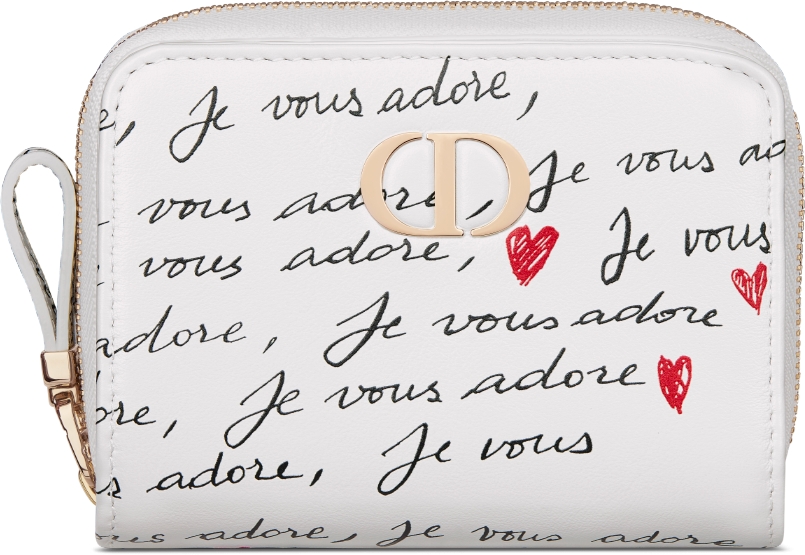 e, Je vous adore,
vous adore, Je vous ad
vous adore, Je vous
adore, Je vous adore
ore, Je vous adore
s adore, Je vous
ous adore, Je vous adore
CD